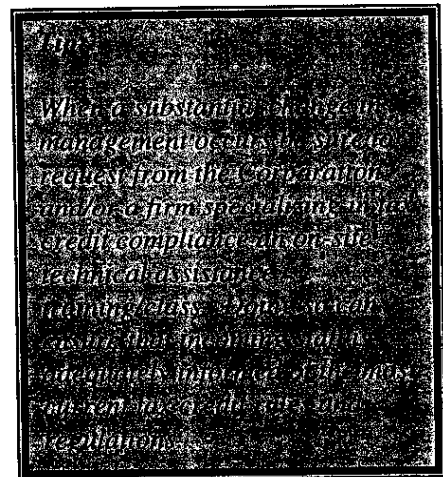 Tip:
When a substantial change in
management occurs, be sure to
request from the Corporation
and/or a firm specializing in tax
credit compliance an on-site
technical assistance
training class.
ensure that
adequately informed of the most
current tax credit rules and
regulations.